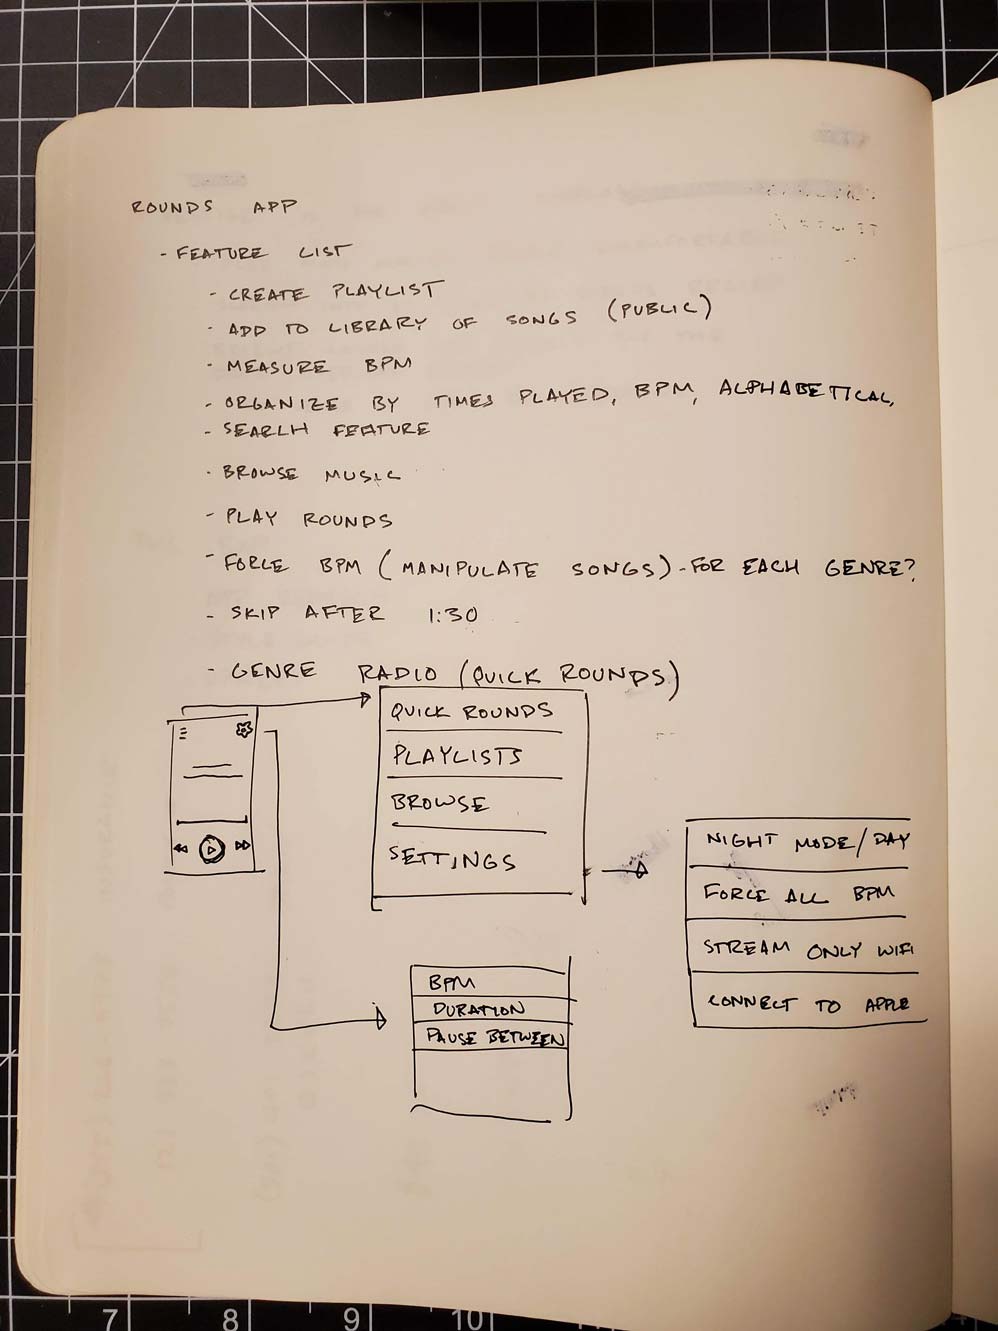 ROUNDS APP
- FEATURE LIST
- CREATE PLAYLIST
- ADD TO LIBRARY OF SONGS (PUBLIC)
- MEASURE BPM
- ORGANIZE BY TIMES PLAYED, BPM, ALPHABETICAL,
- SEARCH FEATURE
- BROWSE MUSIC
- PLAY ROUNDS
- FORCE BPM (MANIPULATE SONGS) - FOR EACH GENRE?
- SKIP AFTER 1:30
- GENRE RADIO (QUICK ROUNDS)
QUICK ROUNDS
PLAYLISTS
BROWSE
SETTINGS
NIGHT MODE/DAY
FORCE ALL BPM
STREAM ONLY WIFI
CONNECT TO APPLE
BPM
DURATION
PAUSE BETWEEN
7 8 9 10